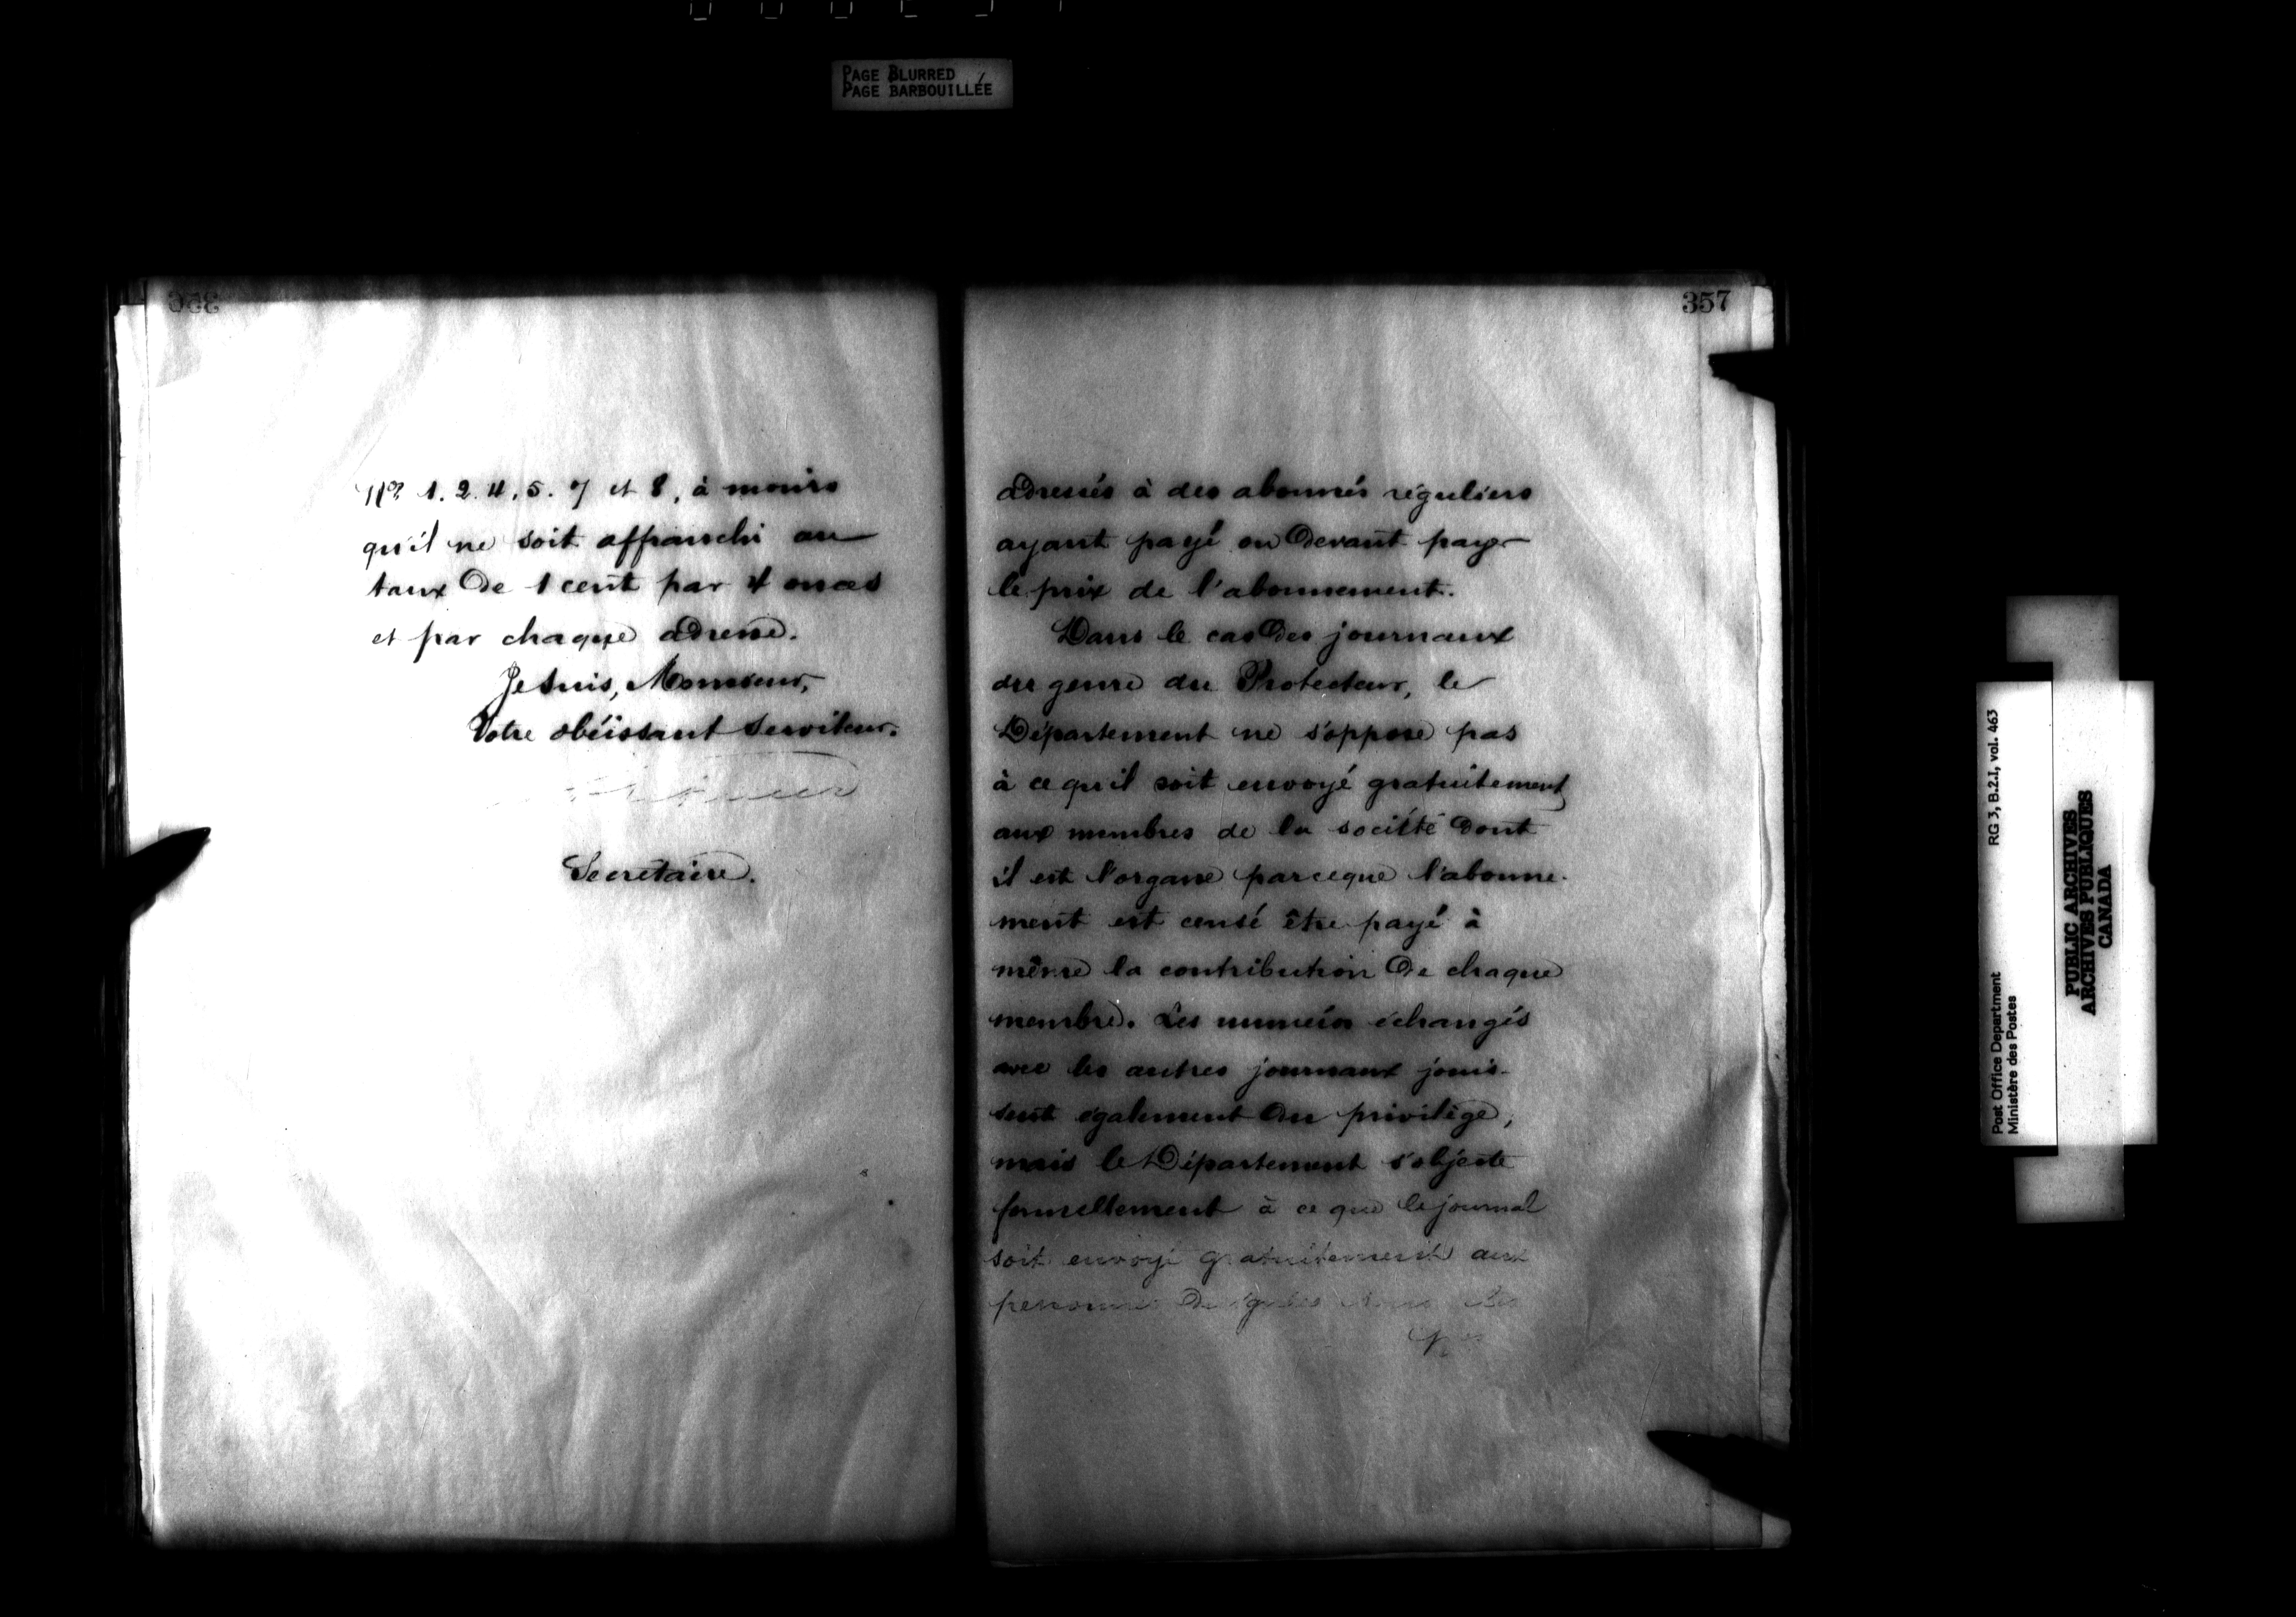 PAGE BLURRED
PAGE BARBOUILLÉE
356
Nos 1. 2. 4. 5. 7 et 8, à moins
qu'il ne soit affranchi au
taux de 1 cent par 4 onces
et par chaque adresse.
Je suis, Monsieur,
Votre obéissant serviteur.
Secretaire.
357
adressés à des abonnés réguliers
ayant payé ou devant payer
le prix de l'abonnement.
Dans le cas des journaux
du genre du Protecteur, le
Département ne s'oppose pas
à ce qu'il soit envoyé gratuitement
aux membres de la société dont
il est l'organe parceque l'abonne-
ment est censé être payé à
même la contribution de chaque
membre. Les numéros échangés
avec les autres journaux jouis-
sent également du privilège,
mais le Département s'objecte
formellement à ce que le journal
soit envoyé gratuitement aux
personnes
RG 3, B.2.I, vol. 463
Post Office Department
Ministère des Postes
PUBLIC ARCHIVES
ARCHIVES PUBLIQUES
CANADA